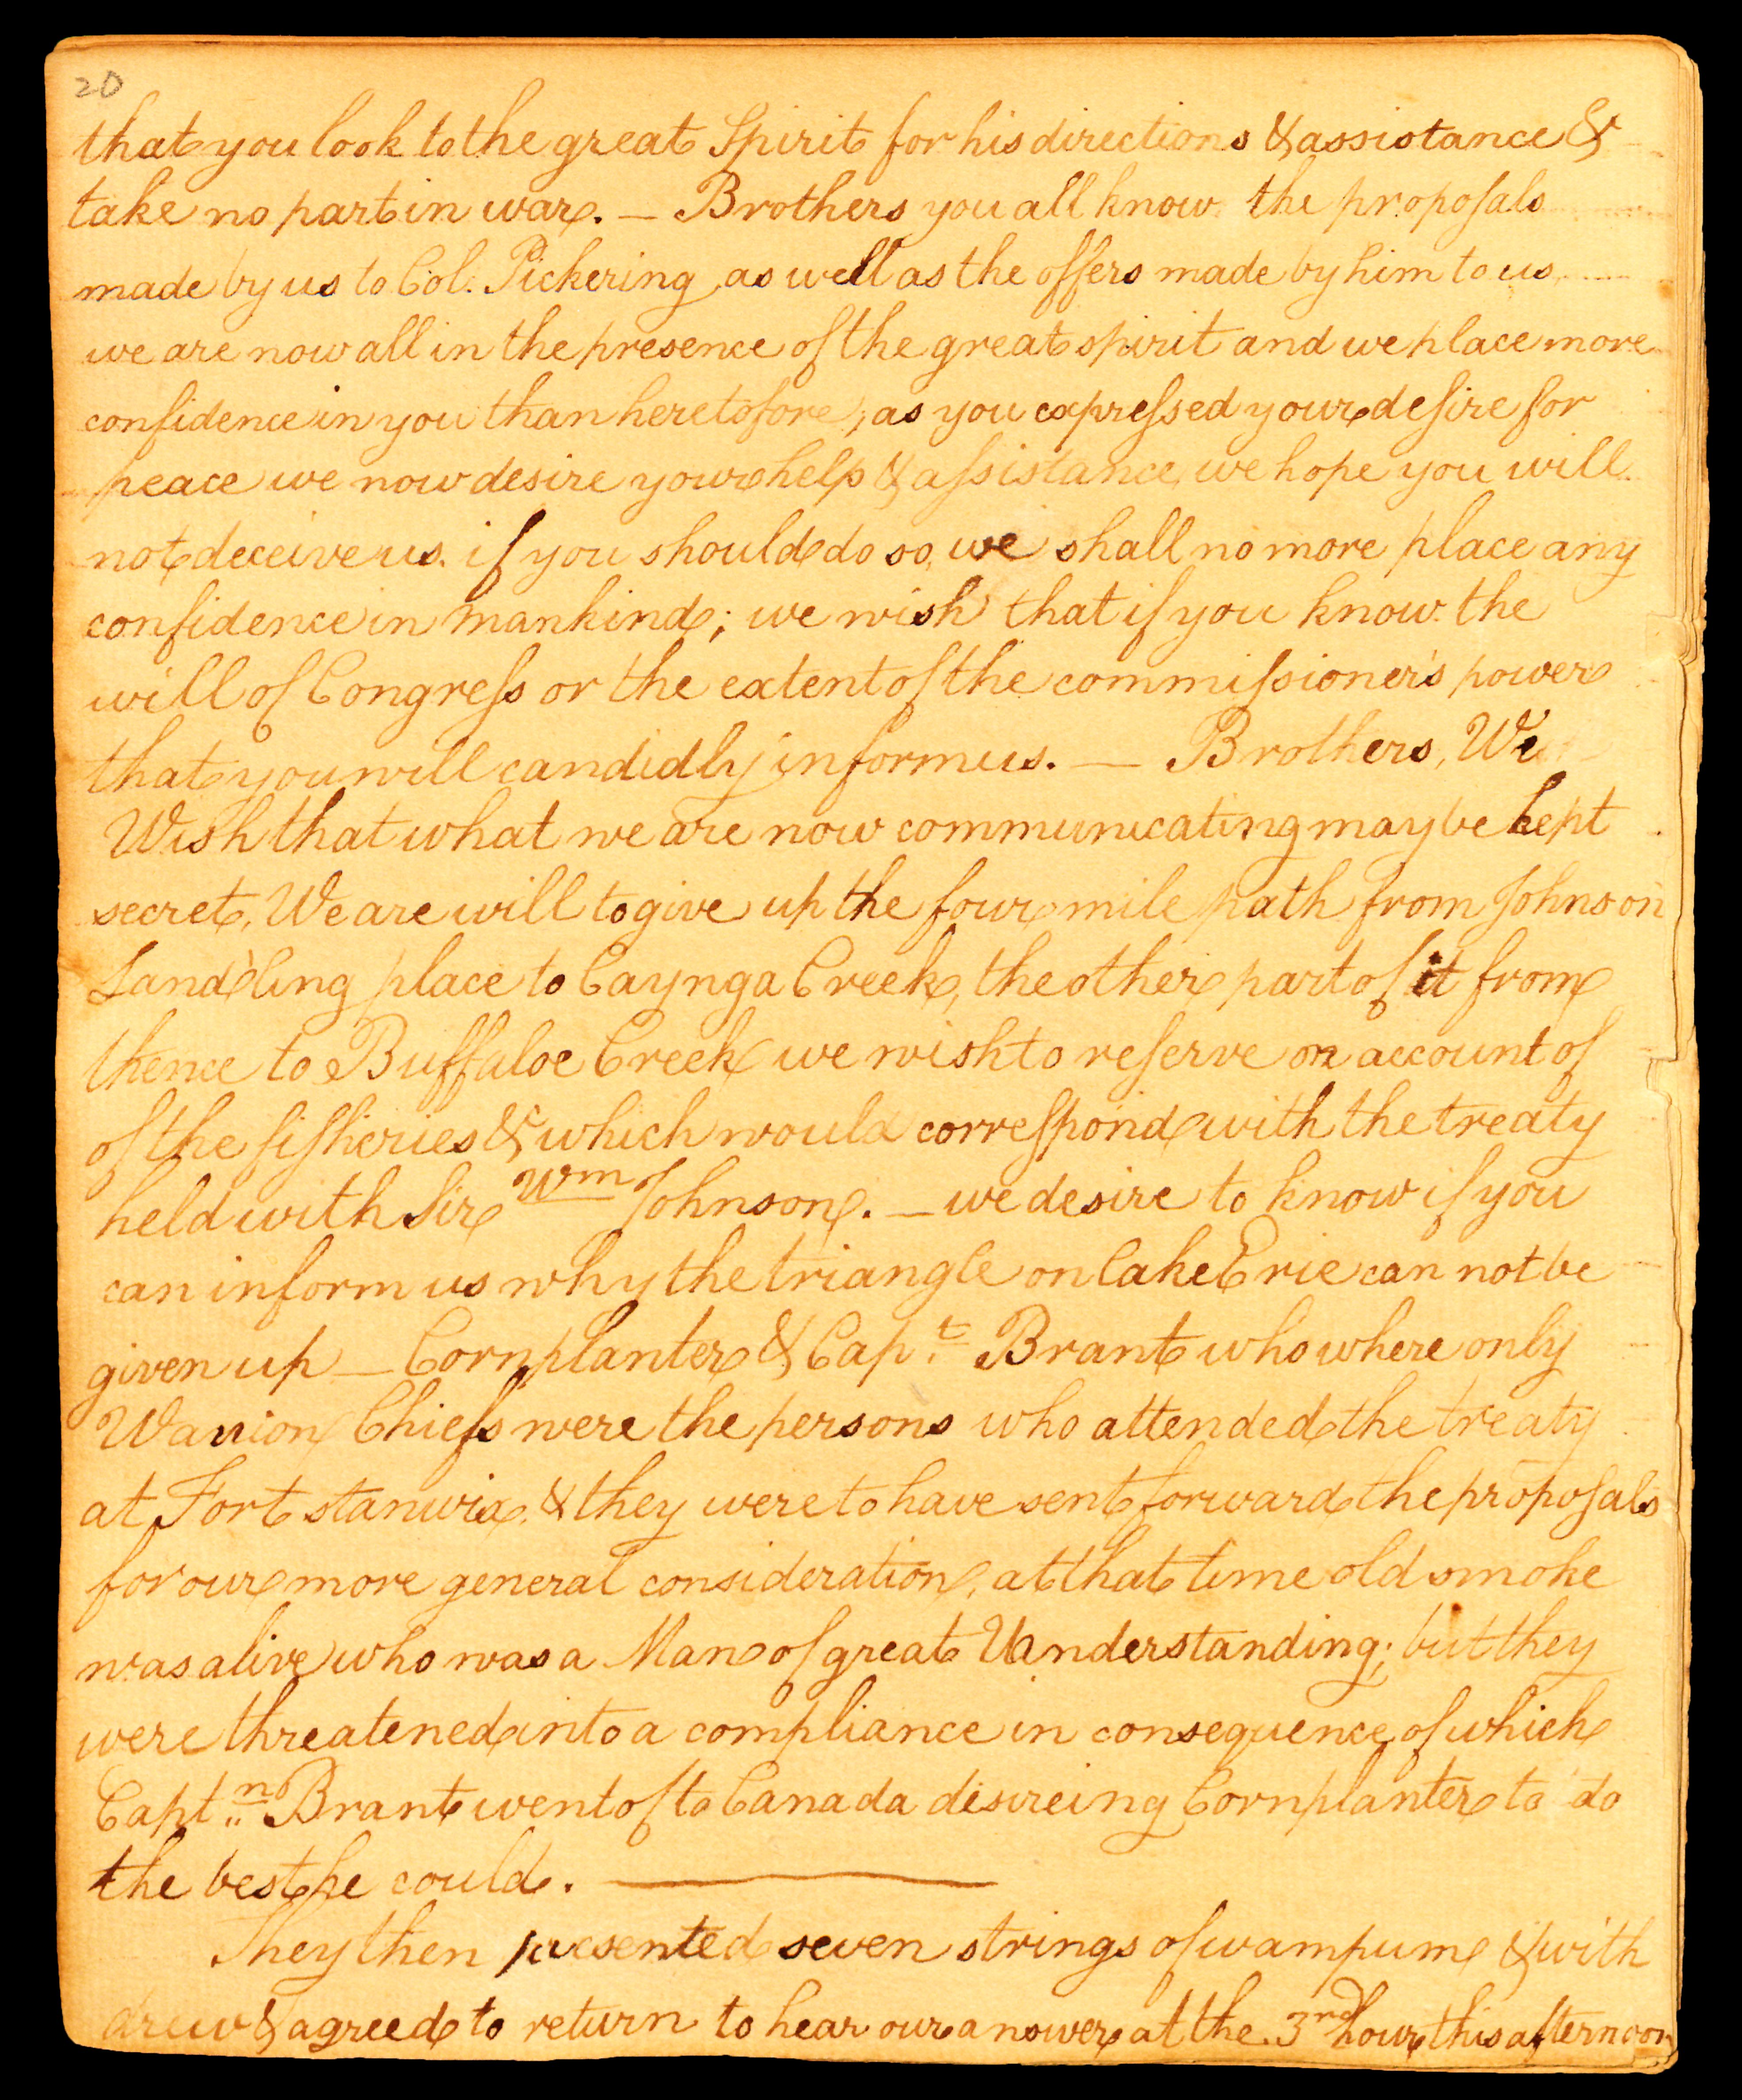 20
that you look to the great Spirit for his directions & assistance &
take no part in war. — Brothers you all know the proposals
made by us to Col. Pickering as well as the offers made by him to us
we are now all in the presence of the great spirit and we place more
confidence in you than heretofore, as you expressed your desire for
peace we now desire your help & assistance, we hope you will
not deceive us. if you should do so, we shall no more place any
confidence in mankind; we wish that if you know the
will of Congress or the extent of the commissioner's power
that you will candidly inform us. — Brothers, We
Wish that what we are now communicating may be kept
secret, We are will to give up the four mile path from Johnson
Landding place to Caynga Creek, the other part of it from
thence to Buffaloe Creek we wish to reserve on account of
of the fisheries & which would correspond with the treaty
held with Sir Wm Johnson. — we desire to know if you
can inform us why the triangle on lake Erie can not be
given up — Cornplanter & Capt. Brant who where only
Warrior Chiefs were the persons who attended the treaty
at Fort stanwix, & they were to have sent forward the proposals
for our more general consideration, at that time old smoke
was alive who was a Man of great Understanding; but they
were threatened into a compliance in consequence of which
Captn. Brant went of to Canada desireing Cornplanter to do
the best he could. —
They then presented seven strings of wampum & with
drew & agreed to return to hear our answer at the 3rd hour this afternoon